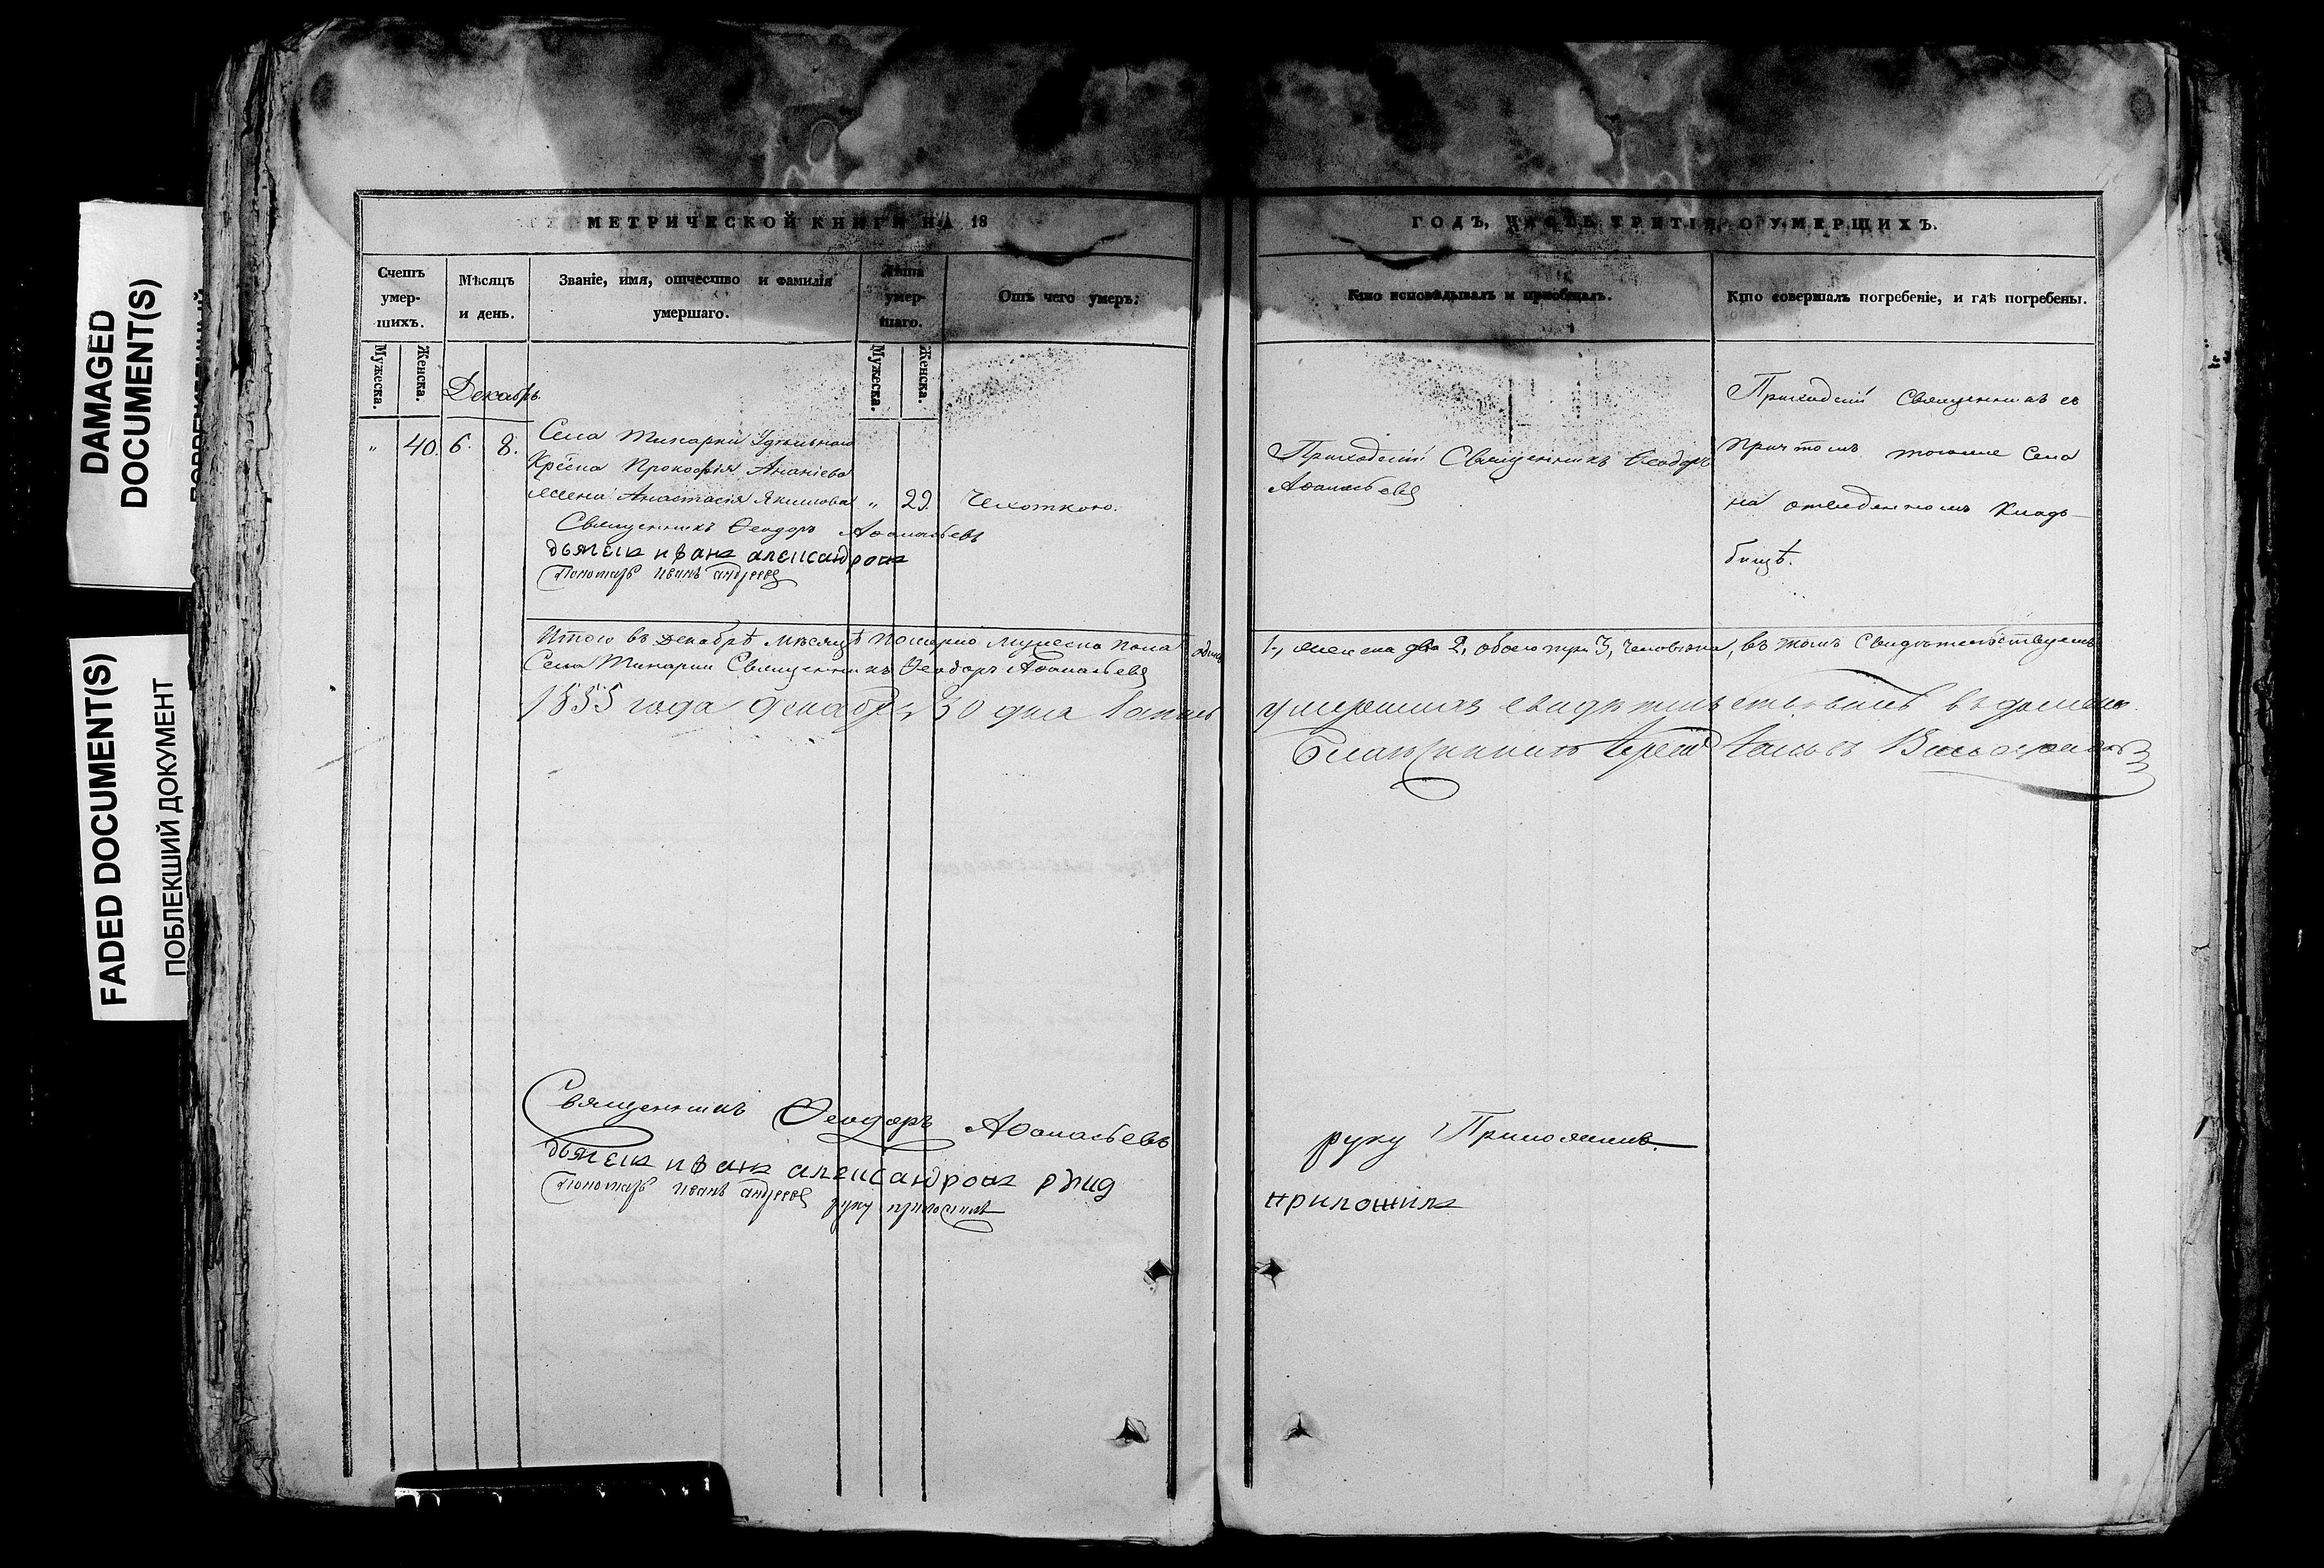 DAMAGED
DOCUMENT(S)
FADED DOCUMENT(S)
ПОБЛЕКШИЙ ДОКУМЕНТ
МЕТРИЧЕСКОЙ КНИГИ НА 18
ГОДЪ, ЧАСТЬ ТРЕТІЯ, О УМЕРШИХЪ.
Счетъ умер-шихъ.
Мѣсяцъ и день.
Званіе, имя, отчество и фамилія умершаго.
Лѣта умер-шаго.
Отъ чего умеръ:
Кто исповѣдывалъ и приобщалъ.
Кто совершалъ погребеніе, и гдѣ погребены.
Мужеска.
Женска.
Мужеска.
Женска.
Декабрь
„ 40. 6. 8.
Села Тинарки Удѣльнаго
Крѣсна Прокофія Ананіева
жена Анастасія Якимова „ 29. Чехоткою.
Священникъ Ѳеодоръ Аѳанасьевъ
дьячекъ иванъ александровъ
Пономарь иванъ андреевъ
Приходскій Священникъ Ѳеодоръ
Аѳанасьевъ
Приходскій Священникъ съ
причтомъ тогоже Села
на отведенномъ Кладъ-
бищѣ.
Итого въ Декабрѣ мѣсяцѣ померло мужеска пола одинъ 1, женска два 2, обоего три 3, человѣка, въ томъ Свидѣтельствуемъ
Села Тинарки Священникъ Ѳеодоръ Аѳанасьевъ
1855 года декабря 30 дня
Благочинный Іерей
Священникъ Ѳеодоръ Аѳанасьевъ руку Приложилъ.
дьячекъ иванъ александровъ руку приложилъ
Пономарь иванъ андреевъ руку приложилъ